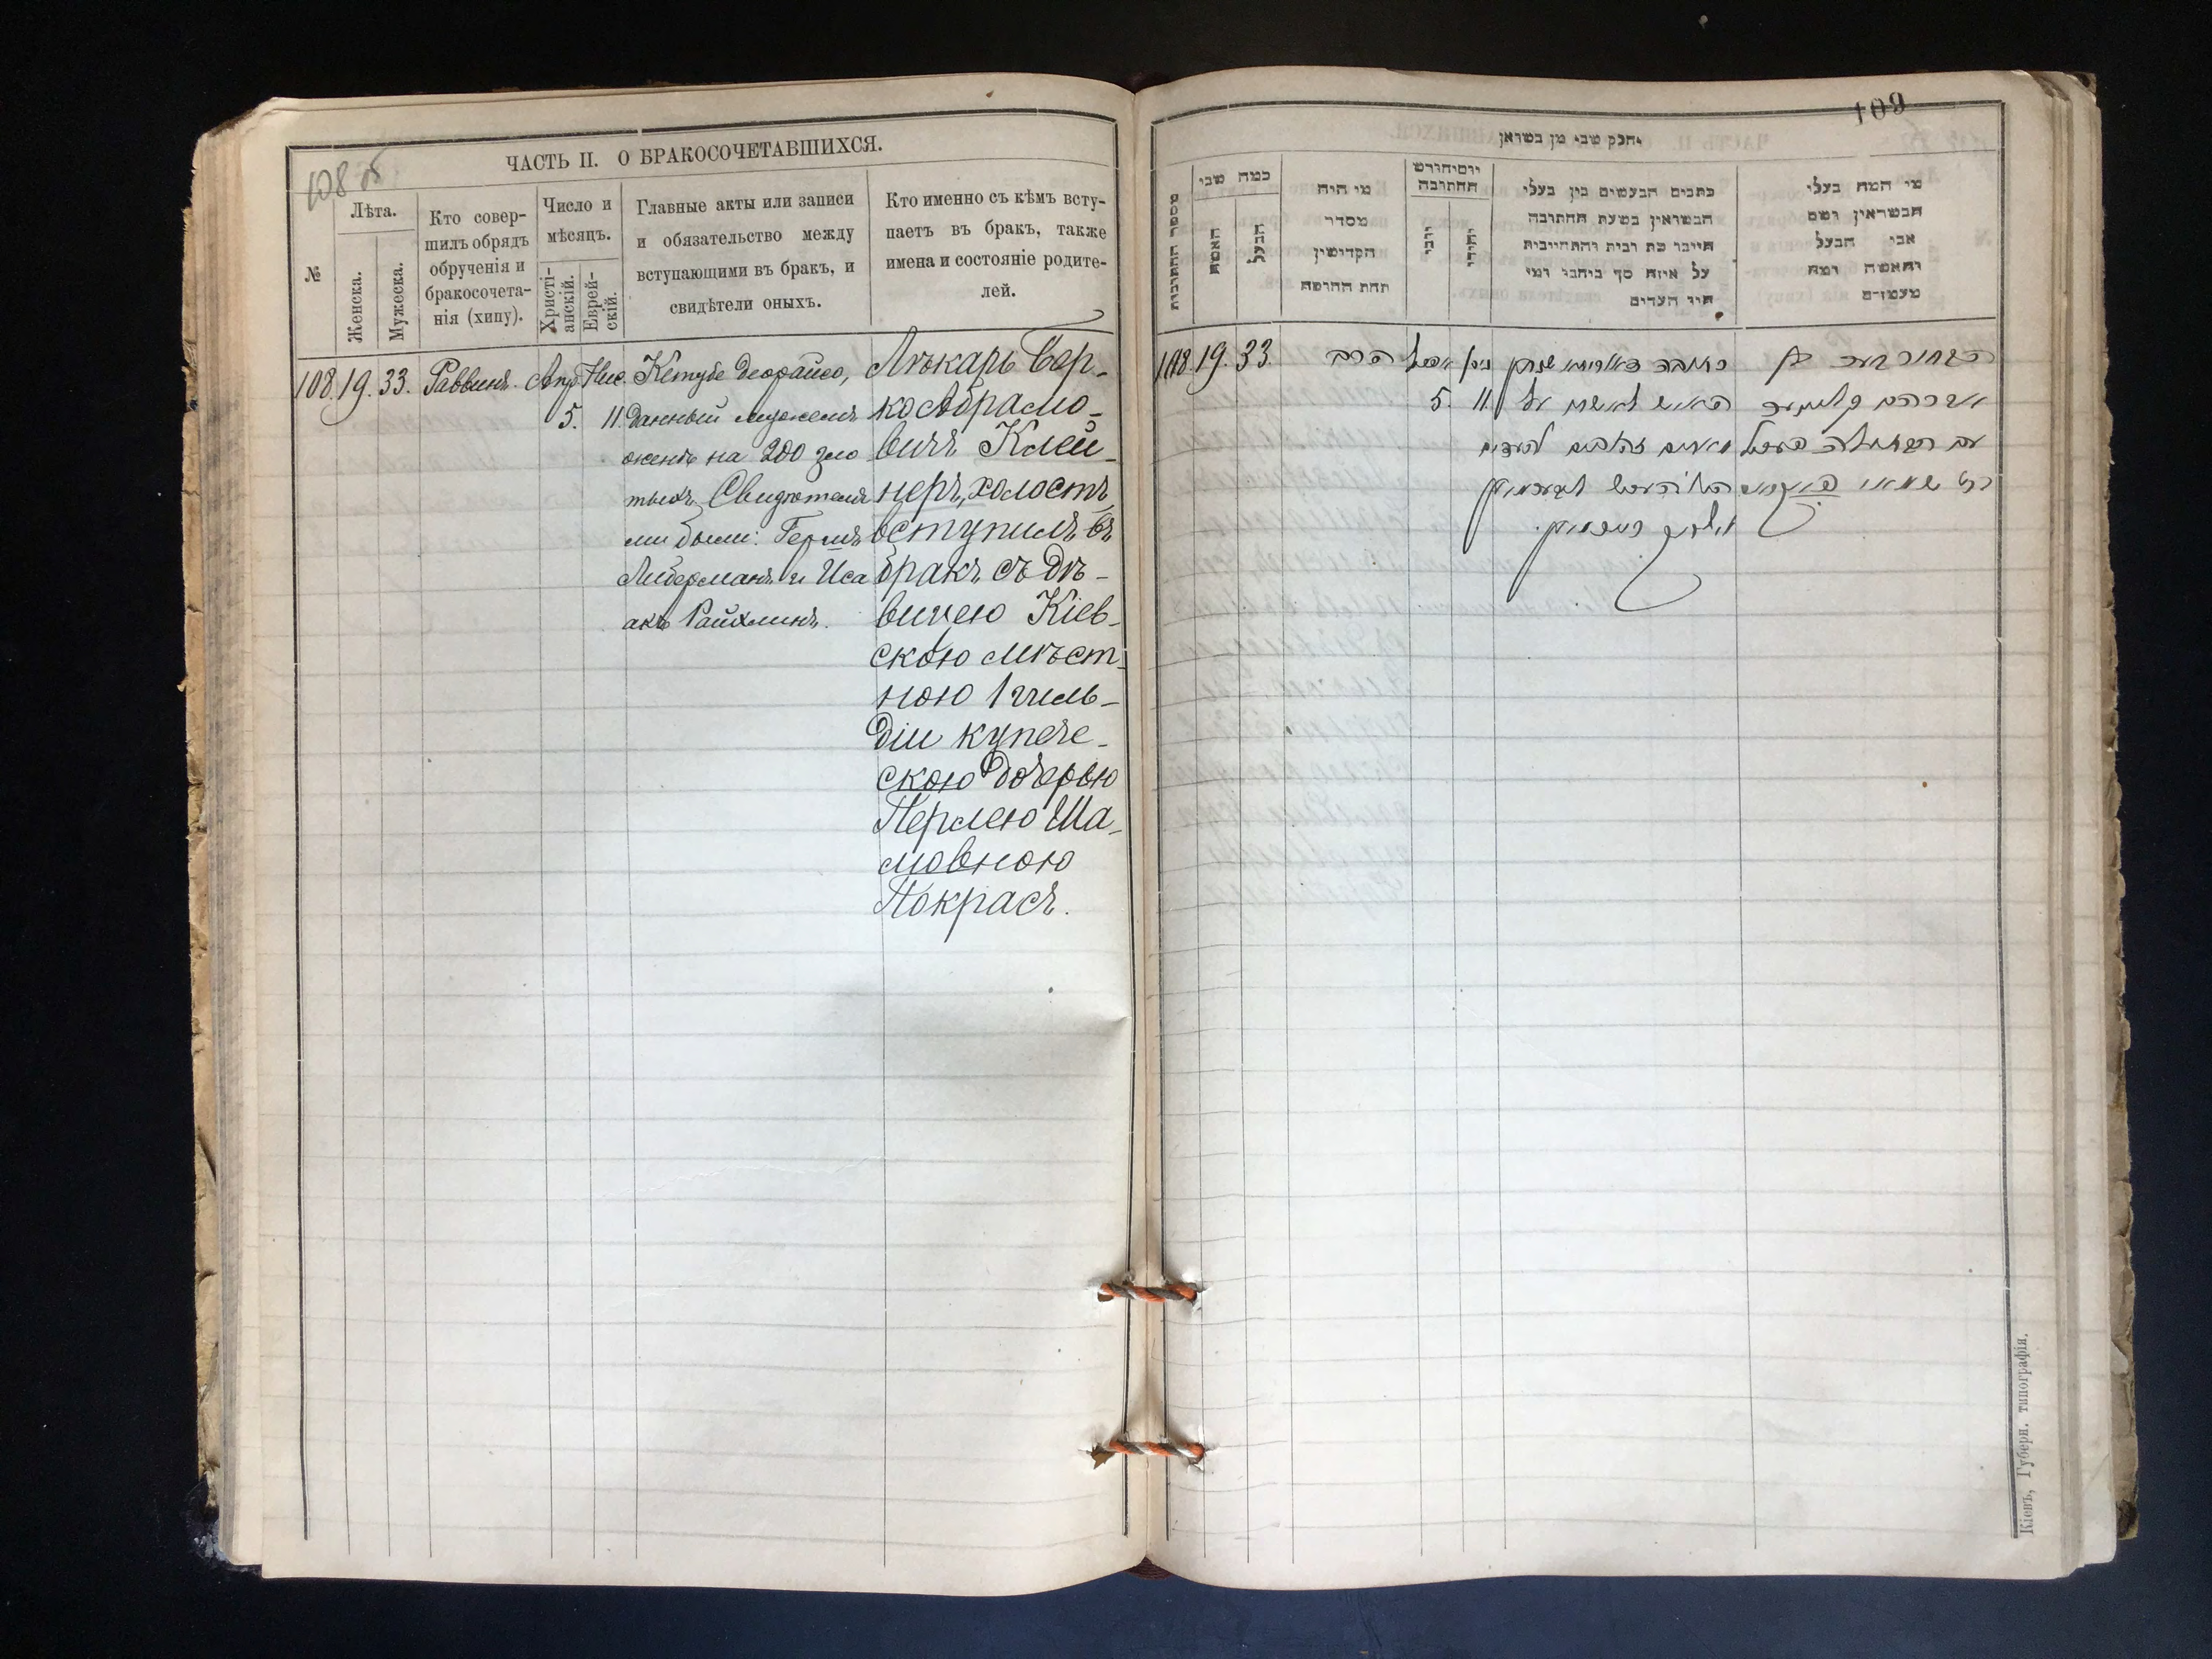 108 об
ЧАСТЬ II. О БРАКОСОЧЕТАВШИХСЯ.
№
Лѣта.
Женска.
Мужеска.
Кто совер-
шилъ обрядъ
обрученія и
бракосочета-
нія (хипу).
Число и
мѣсяцъ.
Христі-
анскій.
Еврей-
скій.
Главные акты или записи
и обязательство между
вступающими въ бракъ, и
свидѣтели оныхъ.
Кто именно съ кѣмъ всту-
паетъ въ бракъ, также
имена и состояніе родите-
лей.
108. 19. 33. Раввинъ. Апр. Нис.
5. 11.
Кетубе деорайсо,
данный мужемъ
женѣ на 200 зло
тыхъ. Свидѣтеля
ми были: Гершъ
Либерманъ и Иса
акъ Райхлинъ.
Лѣкарь Бер-
ко Абрамо-
вичъ Клей-
неръ, холостъ,
вступилъ въ
бракъ съ дѣ-
вицею Кіев-
скою мѣст-
ною 1 гиль-
діи купече-
скою дочерью
Перлею Ша-
мовною
Покрасъ.
109
וחלק שני מן נשואין
מספר החתונות
כמה שני
האשה
הבעל
מי היה
מסדר
הקדושין
תחת החופה
יום וחודש
החתונה
נוצרי
יהודי
כתבים הנעשים בין בעלי
הנשואין בשעת החתונה
חייבו מה ובית והתחייבות
על איזה סך כיתבו ומי
היו העדים
מי המה בעלי
הנשואין ושם
אבי הבעל
והאשה ומה
מעמדם
108. 19. 33. הרב
5. 11.
כתובה דאורייתא שנתן
האיש לאשתו על
מאתים זהובים
הבחור בערקא בן
אברהם קליינער
עם הבתולה פערל
בת שמאי פאקראס
Кіевъ, Губерн. типографія.